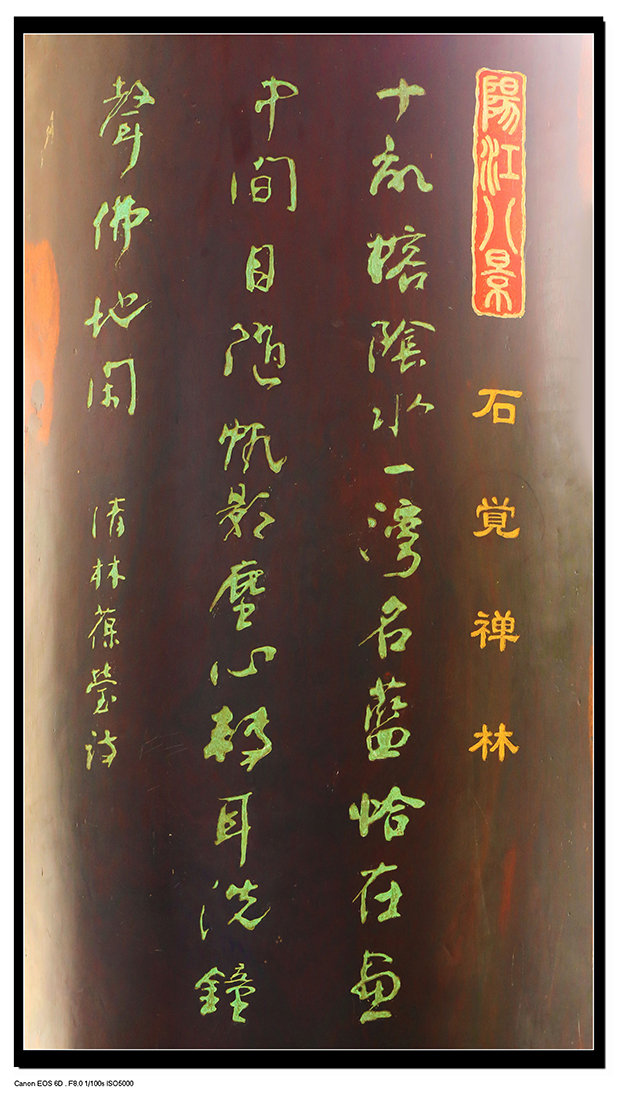 陽江八景
石覚禅林
十畝榕陰水一灣名藍恰在畫
中間目隨帆影塵心轉耳洗鐘
聲佛地閑
清林葆瑩詩
Canon EOS 6D . F8.0 1/100s ISO5000